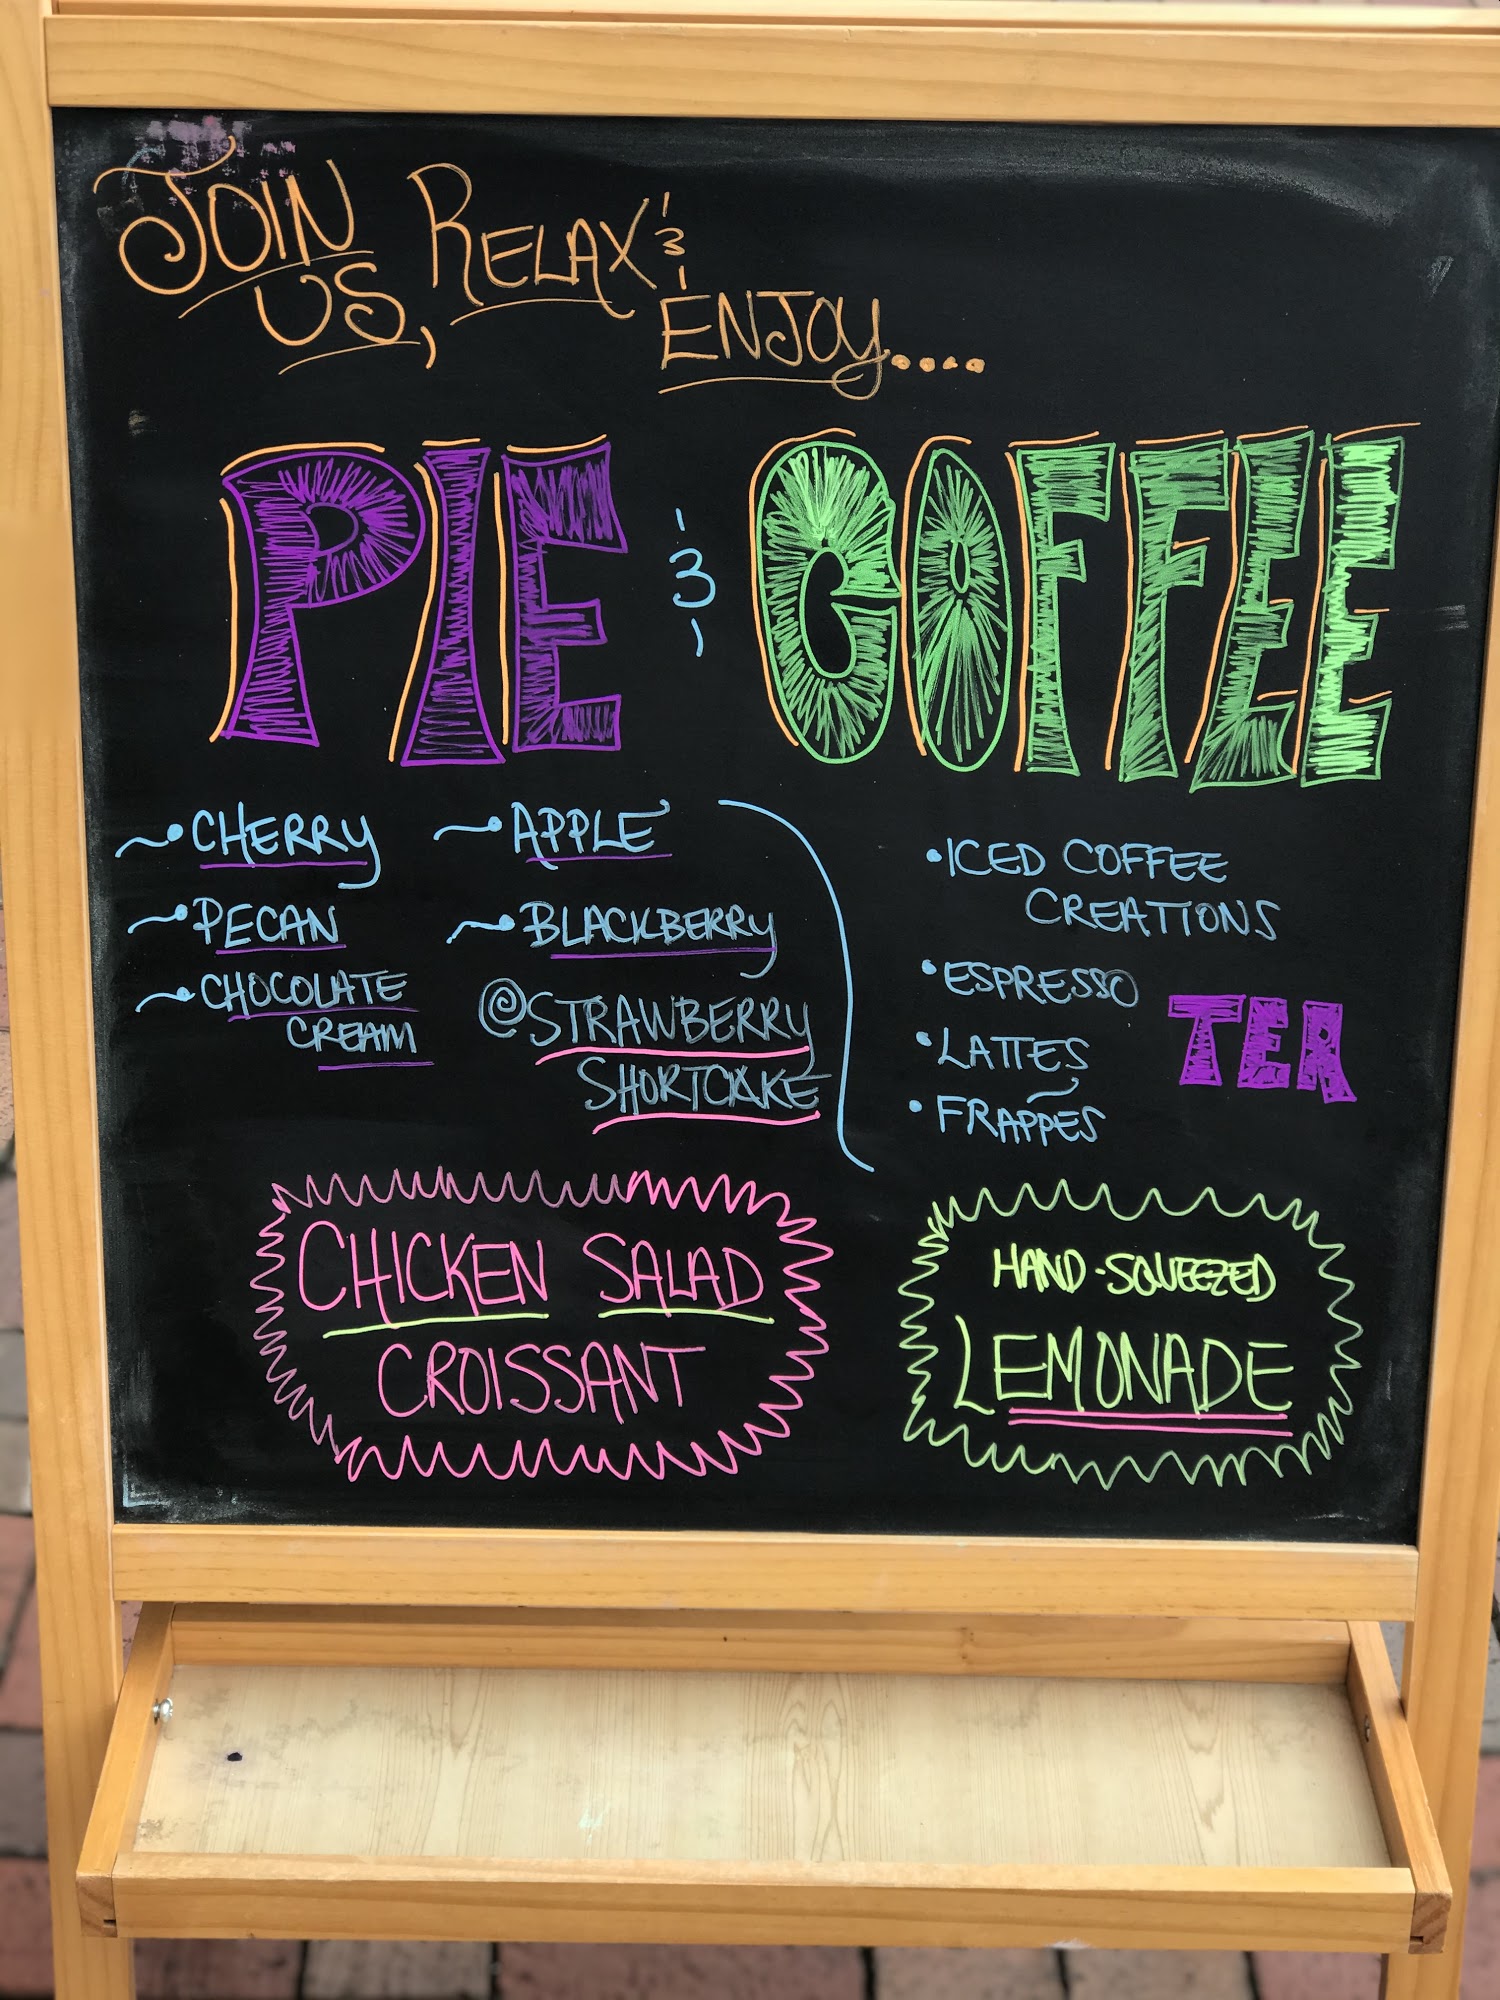 JOIN
US, RELAX &
ENJOY....
PIE & COFFEE
CHERRY
PECAN
CHOCOLATE
CREAM
APPLE
BLACKBERRY
@STRAWBERRY
SHORTCAKE
•ICED COFFEE
CREATIONS
•ESPRESSO
•LATTES
•FRAPPES
TEA
CHICKEN SALAD
CROISSANT
HAND-SQUEEZED
LEMONADE